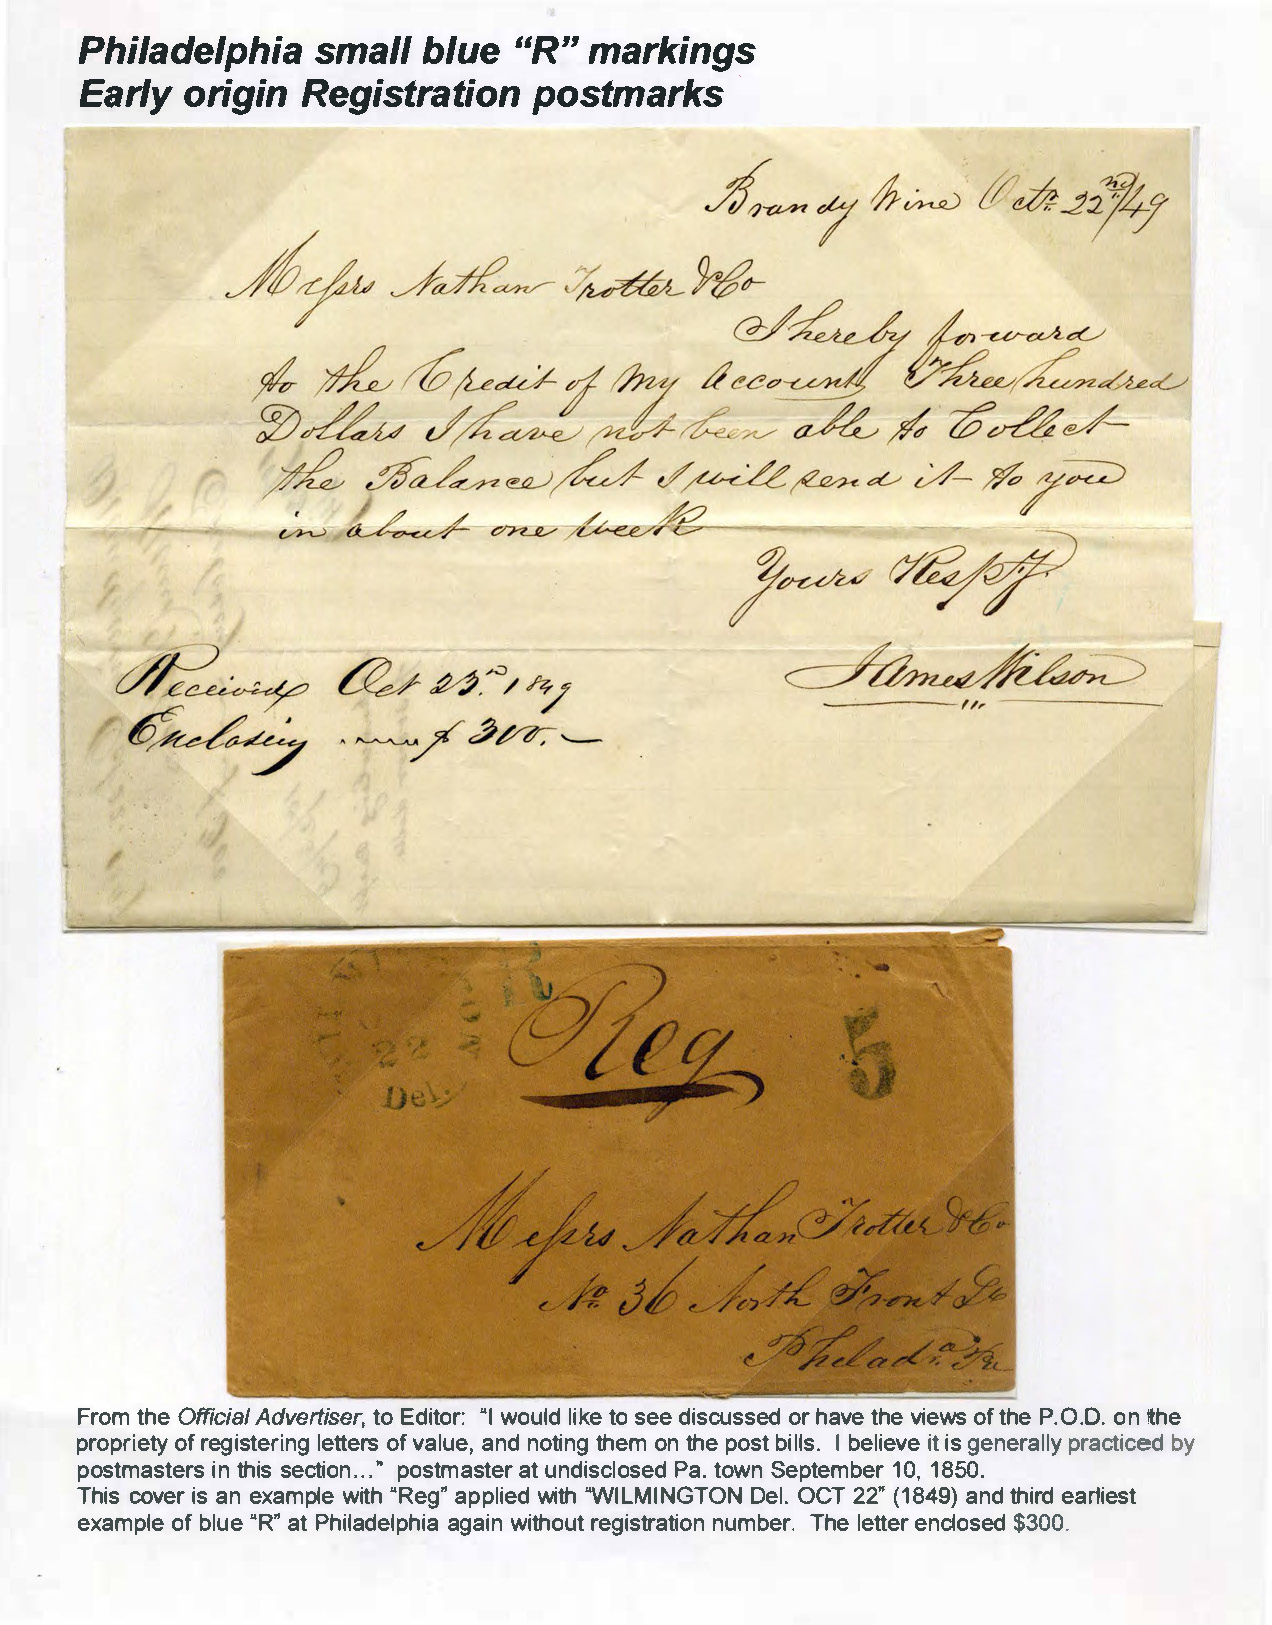 Philadelphia small blue “R” markings
Early origin Registration postmarks
Brandy Wine Octr 22nd/49
Messrs Nathan Trotter & Co
I hereby forward
to the Credit of My Account Three hundred
Dollars I have not been able to Collect
the Balance but I will send it to you
in about one week
Yours Respty.
James Wilson
Received Oct 23rd. 1849
Enclosing $ 300. —
R
Reg
5
22
Del.
Messrs Nathan Trotter & Co
No. 36 North Front St
Philada. Pa
From the Official Advertiser, to Editor: “I would like to see discussed or have the views of the P.O.D. on the
propriety of registering letters of value, and noting them on the post bills. I believe it is generally practiced by
postmasters in this section...” postmaster at undisclosed Pa. town September 10, 1850.
This cover is an example with “Reg” applied with “WILMINGTON Del. OCT 22” (1849) and third earliest
example of blue “R” at Philadelphia again without registration number. The letter enclosed $300.